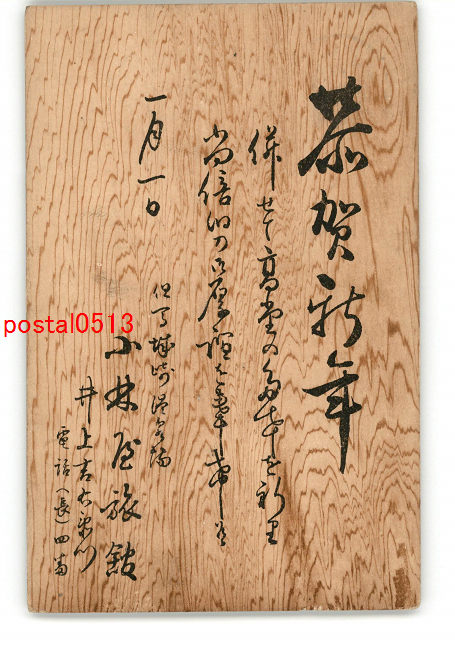 恭賀新年
併せて高堂の多幸を祈里
尚倍旧の御厚情を奉希候
一月一日
但馬城崎温泉場
小林屋旅館
井上吉右衛門
電話(長)四番
postal0513